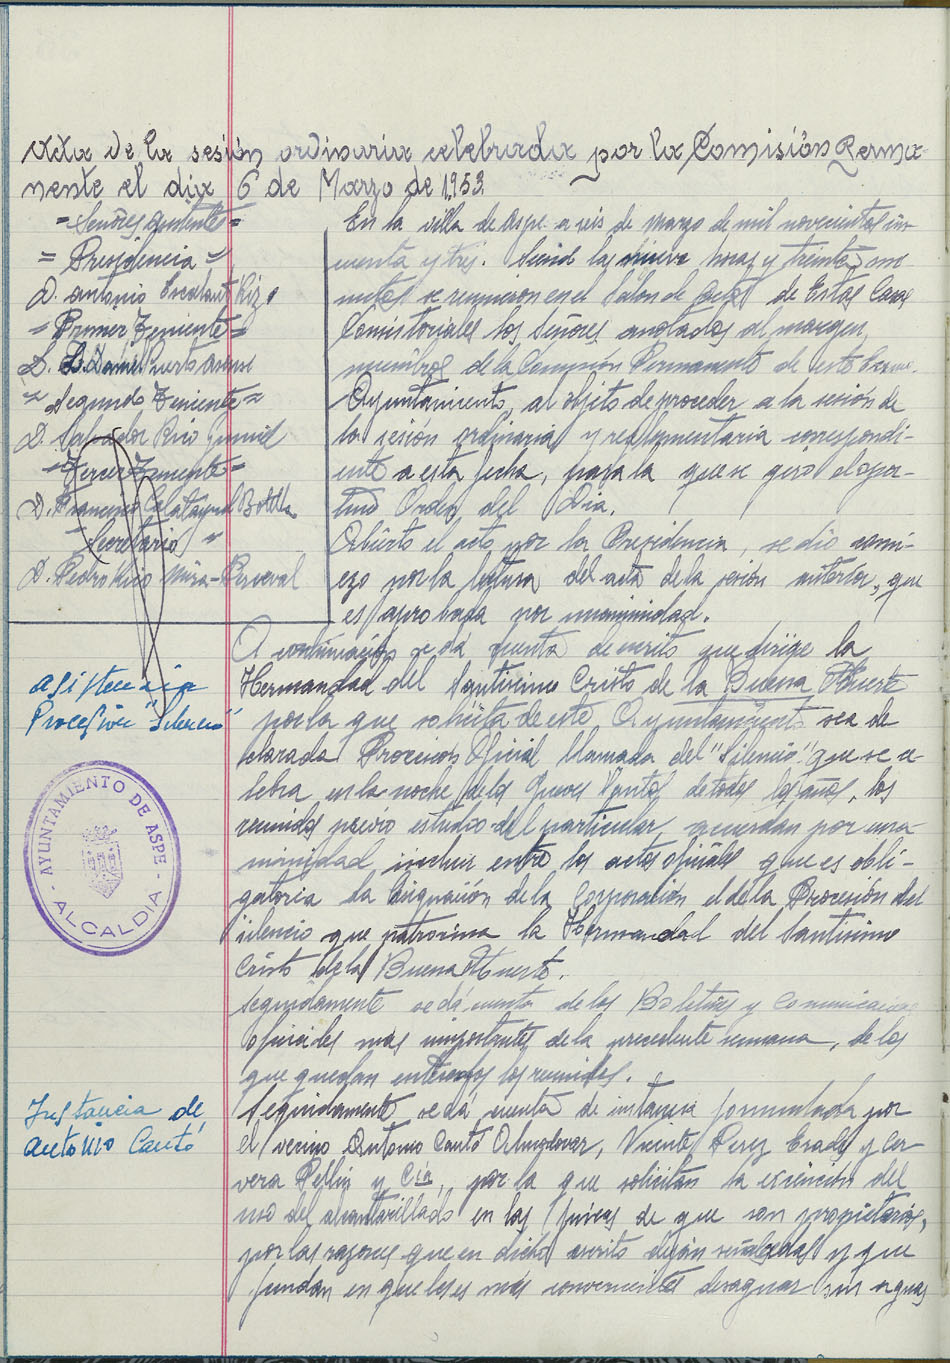 Acta de la sesión ordinaria celebrada por la Comisión Perma-
nente el dia 6 de Marzo de 1.953
=Señores asistentes=
= Presidencia =
D. Antonio Escalant Rizo
=Primer Teniente=
D. Daniel Puerto
= Segundo Teniente =
D. Salvador Rico
=Tercer Teniente=
D. Francisco Calatayud Botella
= Secretario =
D. Pedro Rico Mira-Perceval
En la villa de Aspe a seis de Marzo de mil novecientos cin-
cuenta y tres. Siend las nueve horas y treinta mi
nutos se reunieron en el Salon de actos de Estas Casas
Consistoriales los Señores anotados al margen,
miembros de la Comision Permanente de este
Ayuntamiento, al objeto de proceder a la sesión de
la sesión ordinaria y reglamentaria correspondi-
ente a esta fecha, para la que se giró el opor-
tuno Orden del Dia.
Abierto el acto por la Presidencia, se dió comi-
ezo por la lectura del acta de la sesión anterior, que
es aprobada por unanimidad.
Asistencia
Procesión "Silencio"
A continuación se dá cuenta de escrito que dirige la
Hermandad del Santísimo Cristo de la Buena Muerte
por la que solicita de este Ayuntamiento sea de
clarada Procesion Oficial llamada del "Silencio" que se ce
lebra en la noche de los Jueves Santos de todos los años, los
reunidos previo estudio del particular, acuerdan por una
nimidad, incluir entre los actos oficiales que es obli-
gatoria la asignación de la Corporación el de la Procesión del
silencio que patrocina la Hermandad del Santisimo
Cristo de la Buena Muerte.
AYUNTAMIENTO DE ASPE
- ALCALDIA -
Seguidamente se dá cuenta de los Boletines y Comunicaciones
oficiales mas importantes de la precedente semana, de los
que quedan enterados los reunidos.
Instancia de
Antonio Cantó
Seguidamente se dá cuenta de instancia formulada por
el vecino Antonio Cantó Almodovar, Vicente Perez Erades y Cer
vera Pellin y Cía, por la que solicitan la exención del
uso del alcantarillado en las fincas de que son propietarios,
por las razones que en dicho escrito dejan señaladas y que
fundan en que les es más conveniente desaguar sus aguas